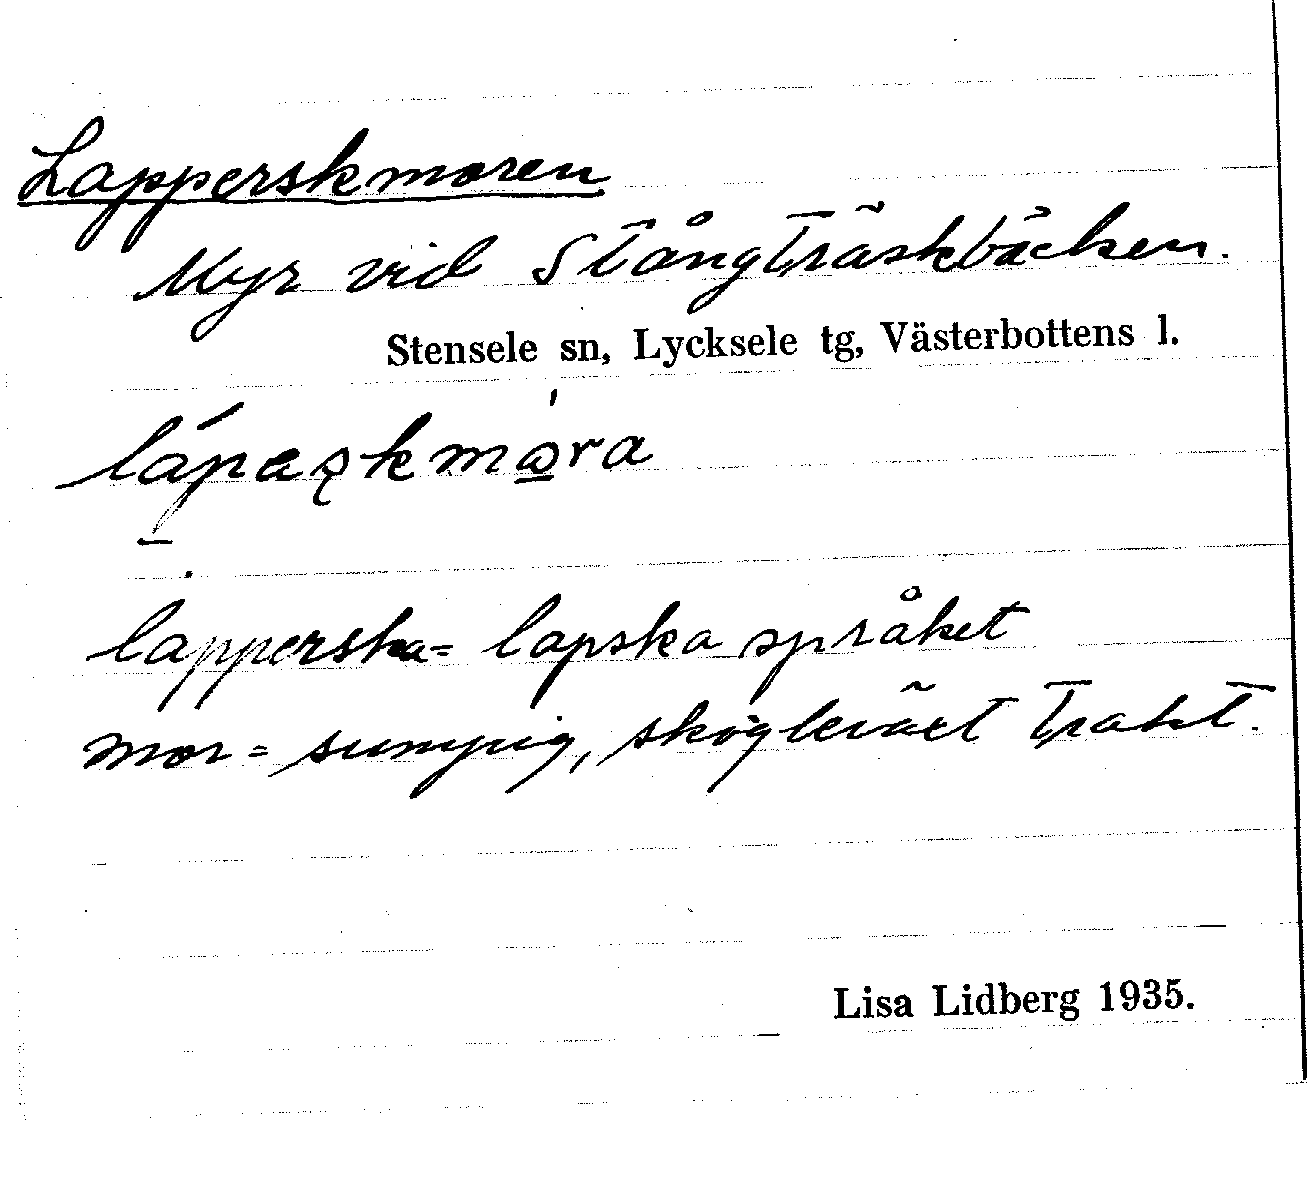 Lapperskmoren
Myr vid Stångträskbäcken.
Stensele sn, Lycksele tg, Västerbottens l.
lápaşkmòra
lapperska = lapska språket
mor = sumpig, skogleväxt trakt.
Lisa Lidberg 1935.